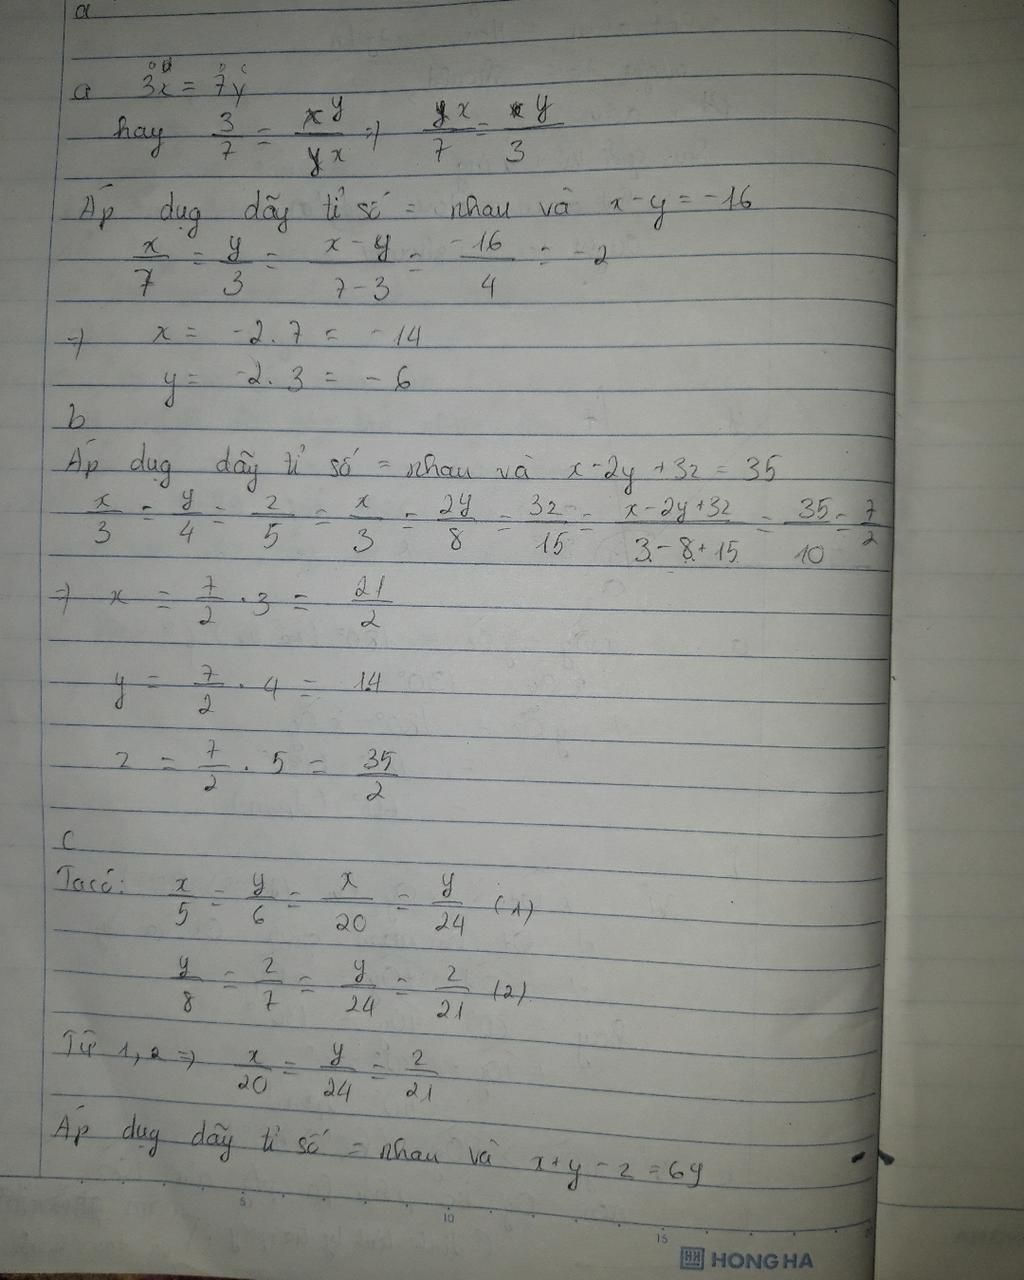 a
a 3x = 7y
hay 3/7 = y/x => x/7 = y/3
Áp dụg dãy tỉ số = nhau và x - y = -16
x/7 = y/3 = x - y/7 - 3 = -16/4 = -2
=> x = -2 . 7 = -14
y = -2 . 3 = -6
b
Áp dụg dãy tỉ số = nhau và x - 2y + 3z = 35
x/3 = y/4 = z/5 = x/3 = 2y/8 = 3z/15 = x - 2y + 3z/3 - 8 + 15 = 35/10 = 7/2
=> x = 7/2 . 3 = 21/2
y = 7/2 . 4 = 14
z = 7/2 . 5 = 35/2
c
Ta có: x/5 = y/6 = x/20 = y/24 (1)
y/8 = z/7 = y/24 = z/21 (2)
Từ 1, 2 => x/20 = y/24 = z/21
Áp dụg dãy tỉ số = nhau và x + y - z = 69
5 10 15
HH HONG HA